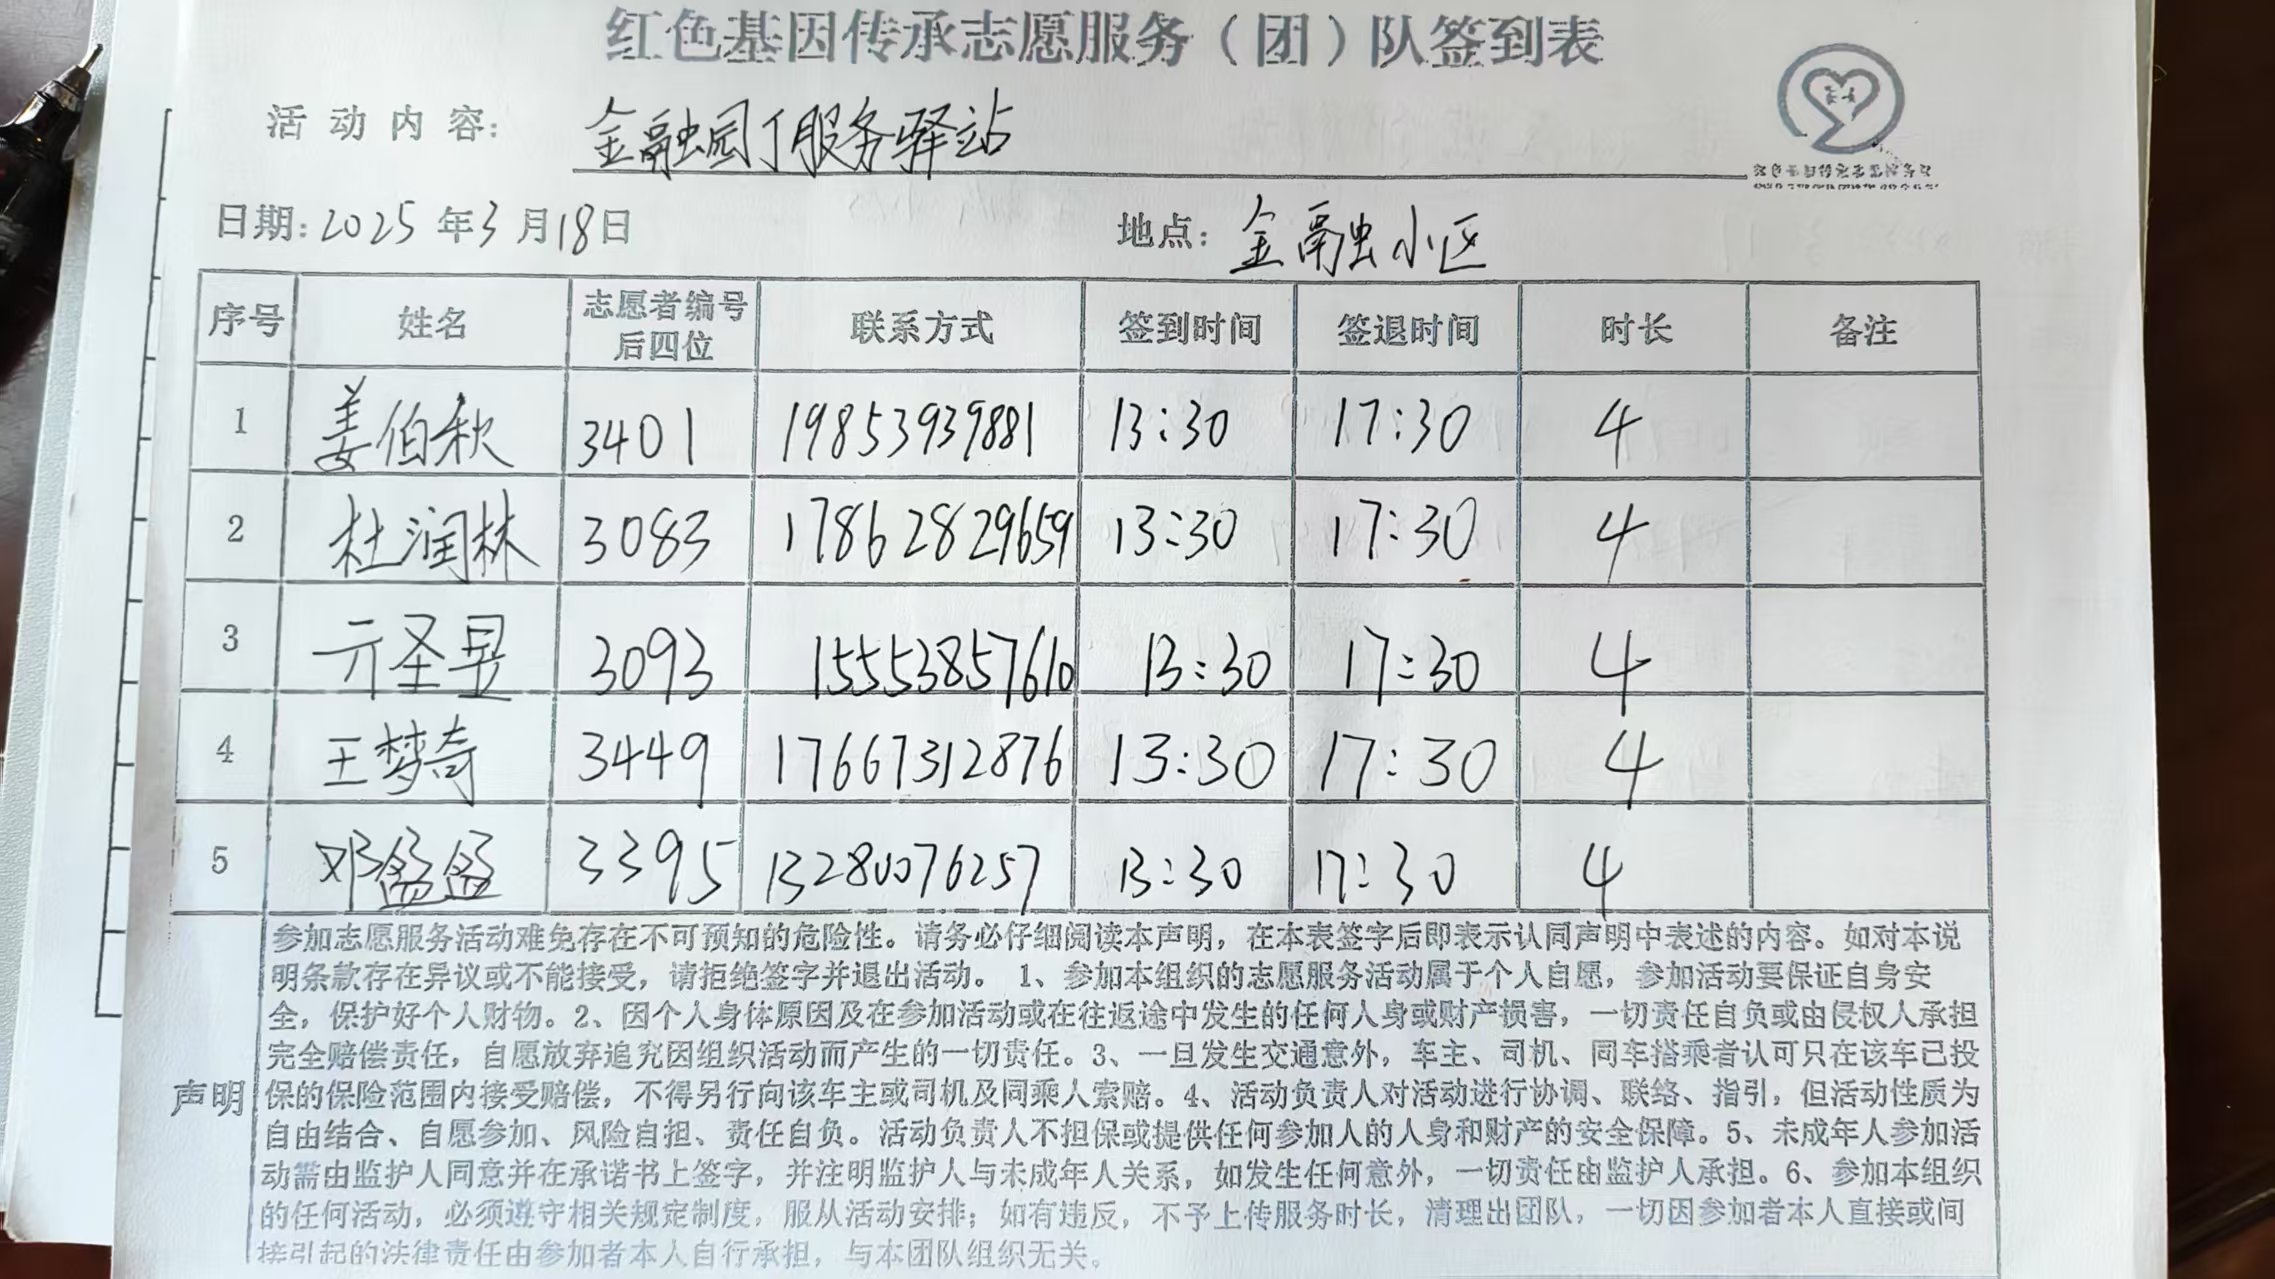 红色基因传承志愿服务（团）队签到表
活动内容： 金融园丁服务驿站
日期：2025年3月18日 地点：金融小区
序号 姓名 志愿者编号后四位 联系方式 签到时间 签退时间 时长 备注
1 姜伯秋 3401 19853939881 13:30 17:30 4
2 杜润林 3083 17862829659 13:30 17:30 4
3 亓圣昱 3093 15553857610 13:30 17:30 4
4 王梦奇 3449 17667312876 13:30 17:30 4
5 邓盈盈 3395 13280076257 13:30 17:30 4
参加志愿服务活动难免存在不可预知的危险性。请务必仔细阅读本声明，在本表签字后即表示认同声明中表述的内容。如对本说
明条款存在异议或不能接受，请拒绝签字并退出活动。 1、参加本组织的志愿服务活动属于个人自愿，参加活动要保证自身安
全，保护好个人财物。2、因个人身体原因及在参加活动或在往返途中发生的任何人身或财产损害，一切责任自负或由侵权人承担
完全赔偿责任，自愿放弃追究因组织活动而产生的一切责任。3、一旦发生交通意外，车主、司机、同车搭乘者认可只在该车已投
声明 保的保险范围内接受赔偿，不得另行向该车主或司机及同乘人索赔。4、活动负责人对活动进行协调、联络、指引，但活动性质为
自由结合、自愿参加、风险自担、责任自负。活动负责人不担保或提供任何参加人的人身和财产的安全保障。5、未成年人参加活
动需由监护人同意并在承诺书上签字，并注明监护人与未成年人关系，如发生任何意外，一切责任由监护人承担。6、参加本组织
的任何活动，必须遵守相关规定制度，服从活动安排；如有违反，不予上传服务时长，清理出团队，一切因参加者本人直接或间
接引起的法律责任由参加者本人自行承担，与本团队组织无关。